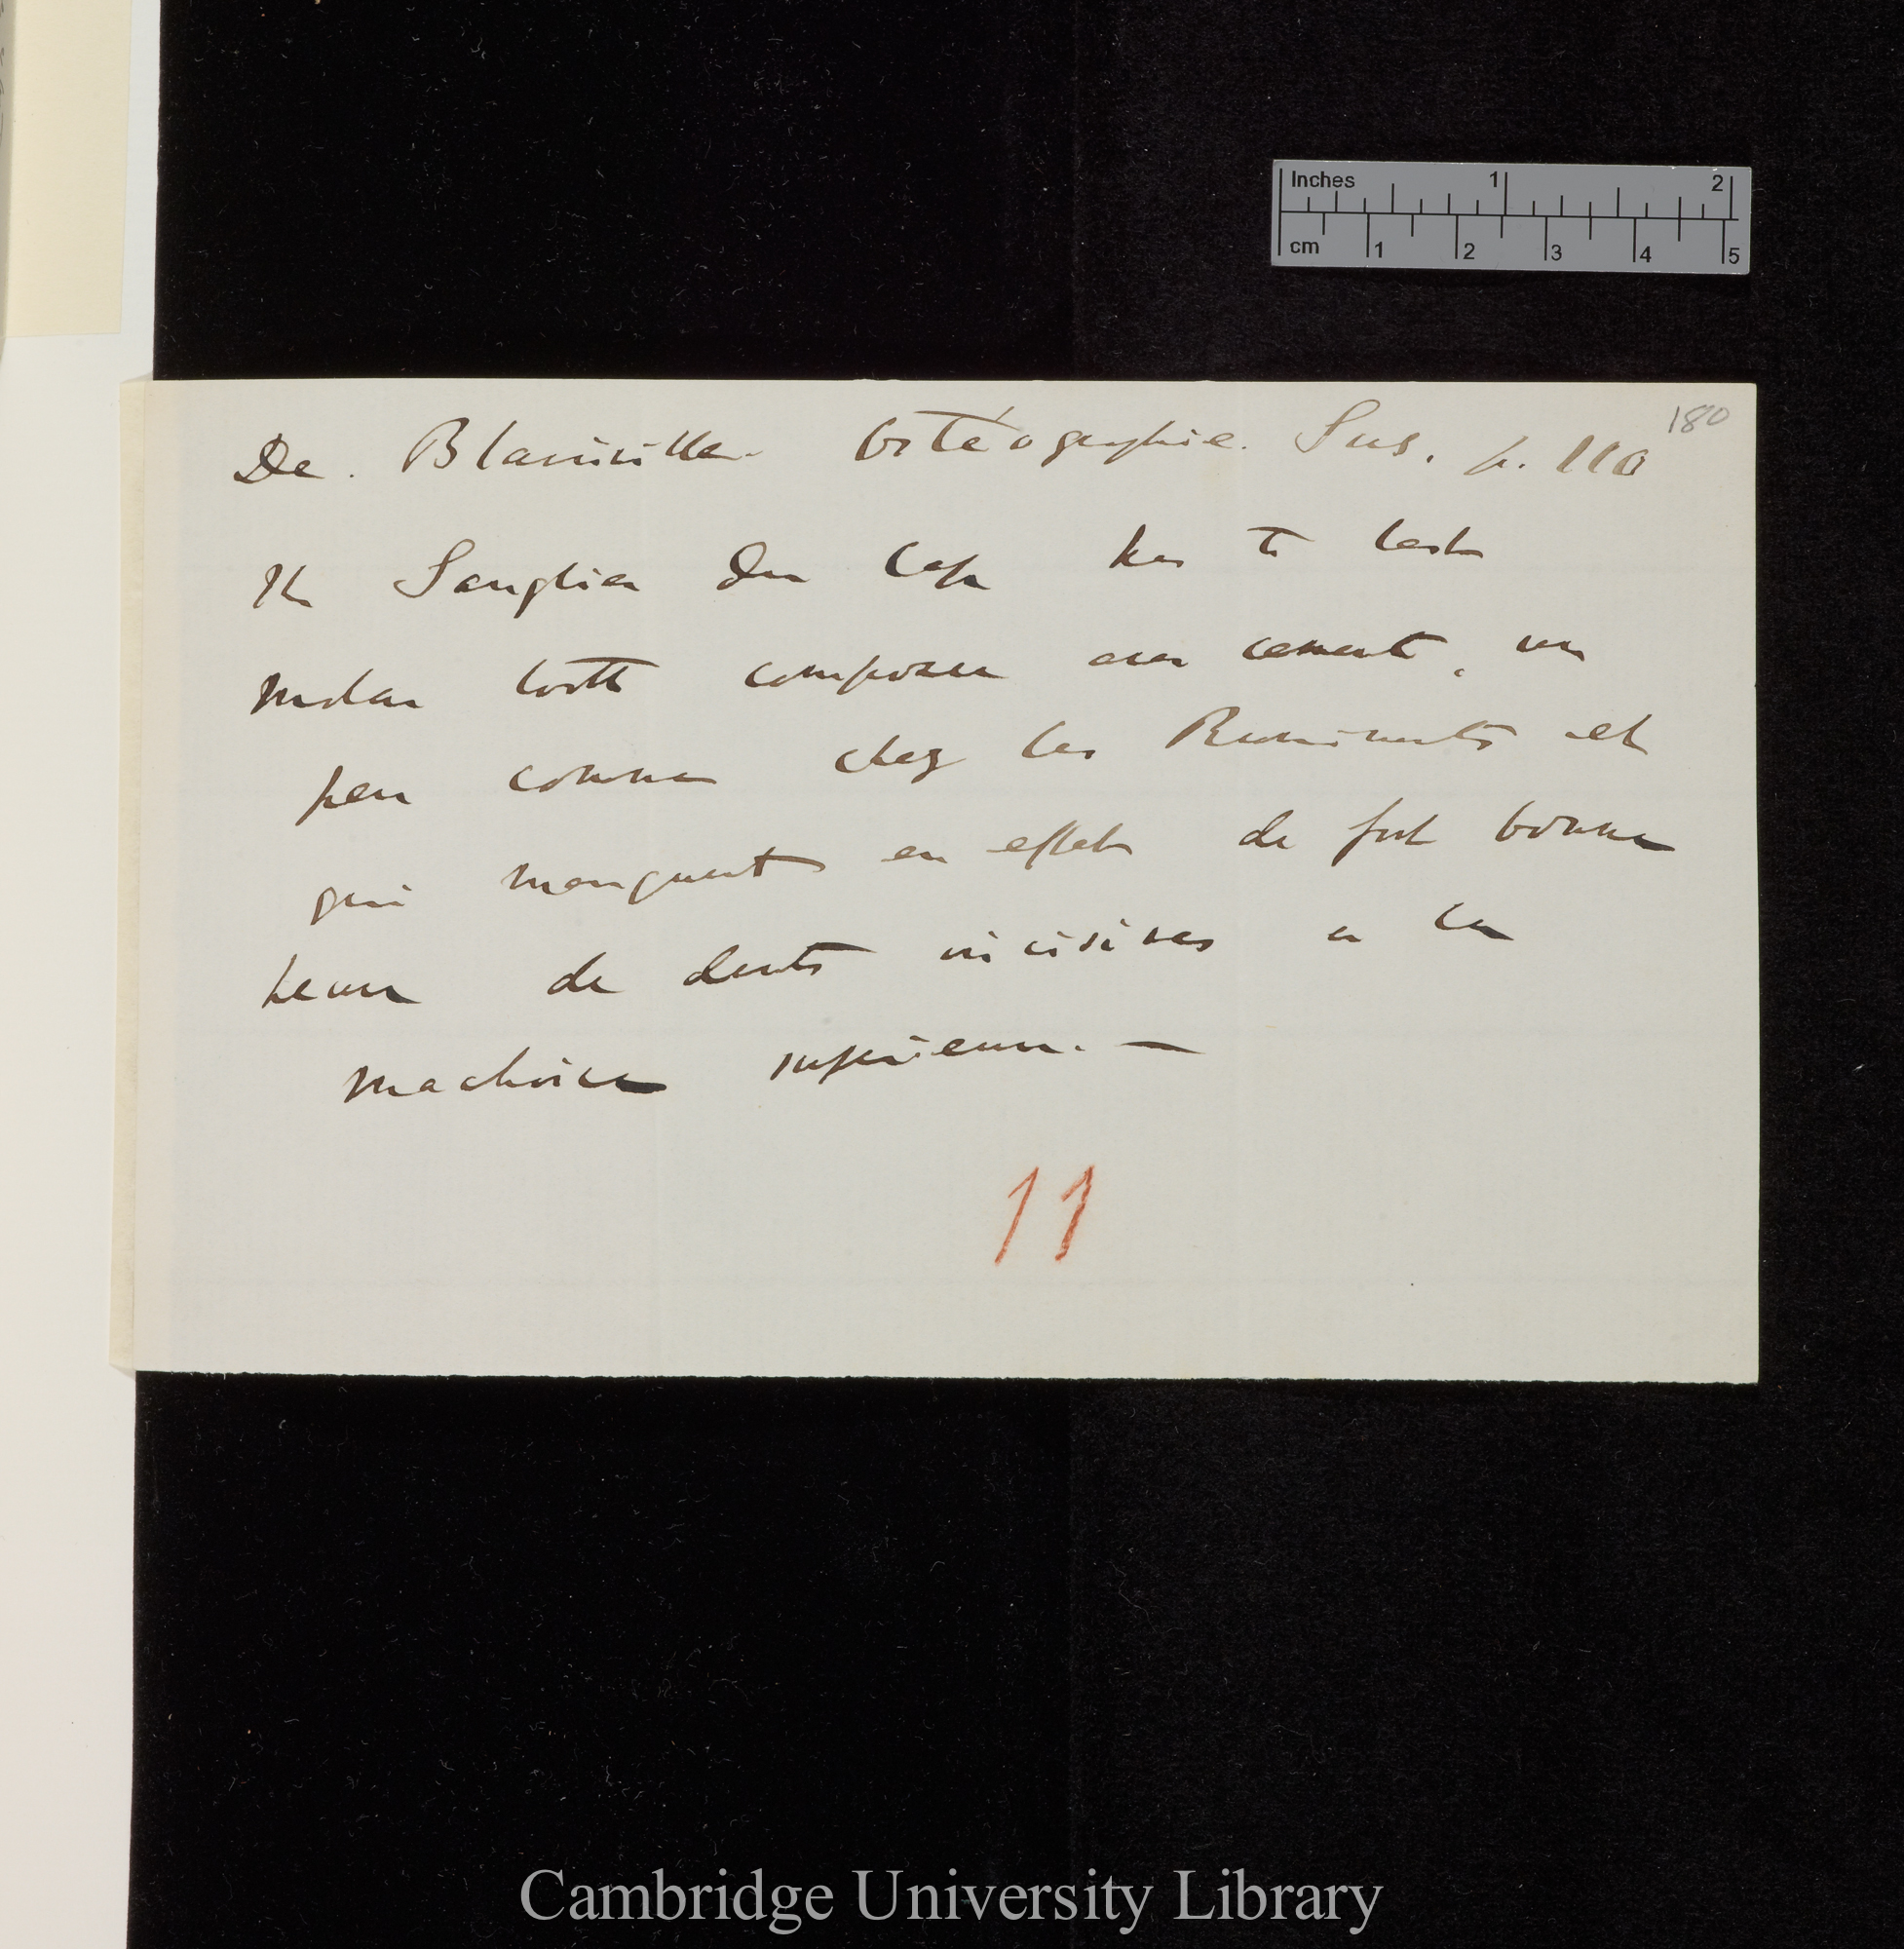 180
De. Blainville. Ostéographie. Sus. p. 110
The Sanglier du Cap has the last
molar tooth composée avec cement, un
peu comme chez les Ruminants et
qui manquent en effet de fort bonne
heure de dents incisives a la
machoire superieure. —
11
Inches 1 2
cm 1 2 3 4 5
Cambridge University Library